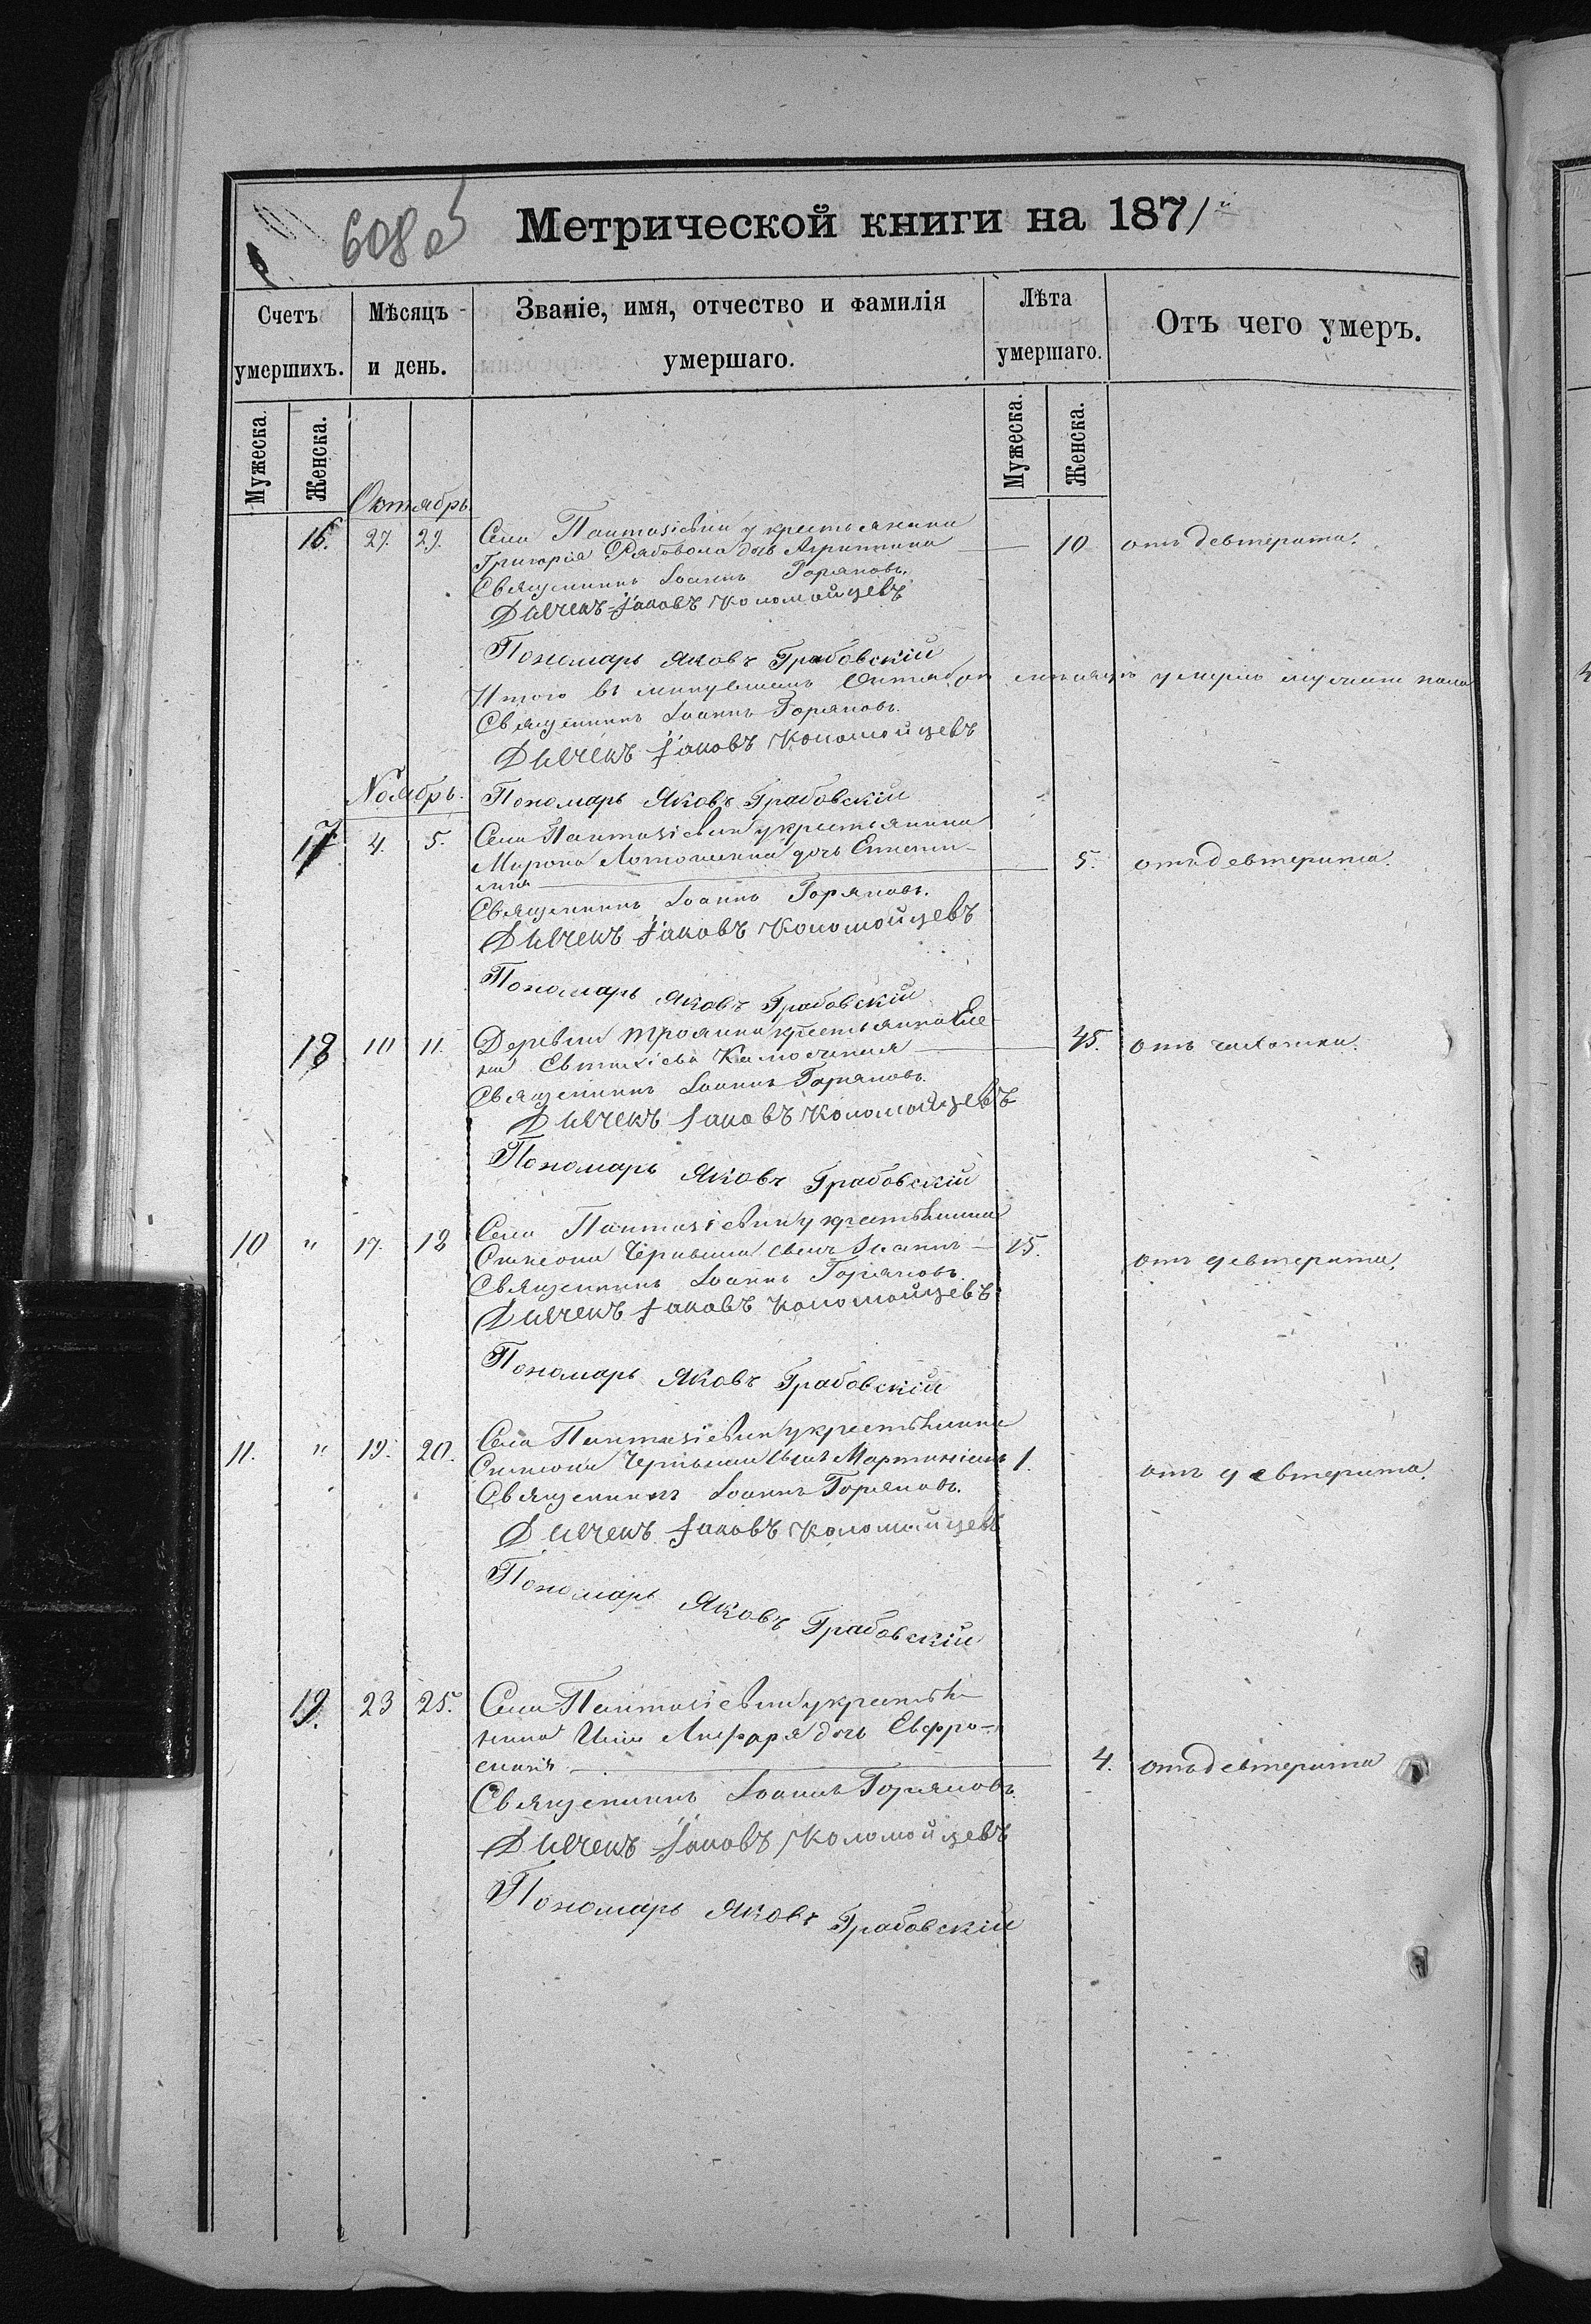 608 об
Метрической книги на 1871
Счетъ умершихъ.
Мѣсяцъ и день.
Званіе, имя, отчество и фамилія умершаго.
Лѣта умершаго.
Отъ чего умеръ.
Мужеска.
Женска.
Мужеска.
Женска.
Октябрь
16. 27. 29. Села Пантазіевки у крестьянина
Григорія Рябовола дочь Агриппина — 10 отъ девтерита.
Священникъ Іоаннъ Горяновъ.
Дьячекъ Іаковъ Коломойцевъ
Пономарь Яковъ Грабовскій
Итого въ минувшемъ Октябрѣ мѣсяцѣ умерло мужеска пола
Священникъ Іоаннъ Горяновъ.
Дьячекъ Іаковъ Коломойцевъ
Ноябрь. Пономарь Яковъ Грабовскій
17 4. 5. Села Пантазіевки у крестьянина
Мирона дочь — 5. отъ девтерита.
Священникъ Іоаннъ Горяновъ.
Дьячекъ Іаковъ Коломойцевъ
Пономарь Яковъ Грабовскій
18 10 11. Деревни Троянки крестьянка Еле-
на Евтихіева — 45. отъ чахотки.
Священникъ Іоаннъ Горяновъ.
Дьячекъ Іаковъ Коломойцевъ
Пономарь Яковъ Грабовскій
10 " 17. 18 Села Пантазіевки у крестьянина
Симеона сынъ Іоаннъ — 15. отъ девтерита.
Священникъ Іоаннъ Горяновъ.
Дьячекъ Іаковъ Коломойцевъ
Пономарь Яковъ Грабовскій
11. " 19. 20. Села Пантазіевки у крестьянина
Симеона сынъ Мартиніанъ 1. отъ девтерита.
Священникъ Іоаннъ Горяновъ.
Дьячекъ Іаковъ Коломойцевъ
Пономарь Яковъ Грабовскій
19. 23 25. Села Пантазіевки у крестья-
нина дочь Евфро-
синія — 4. отъ девтерита
Священникъ Іоаннъ Горяновъ.
Дьячекъ Іаковъ Коломойцевъ
Пономарь Яковъ Грабовскій